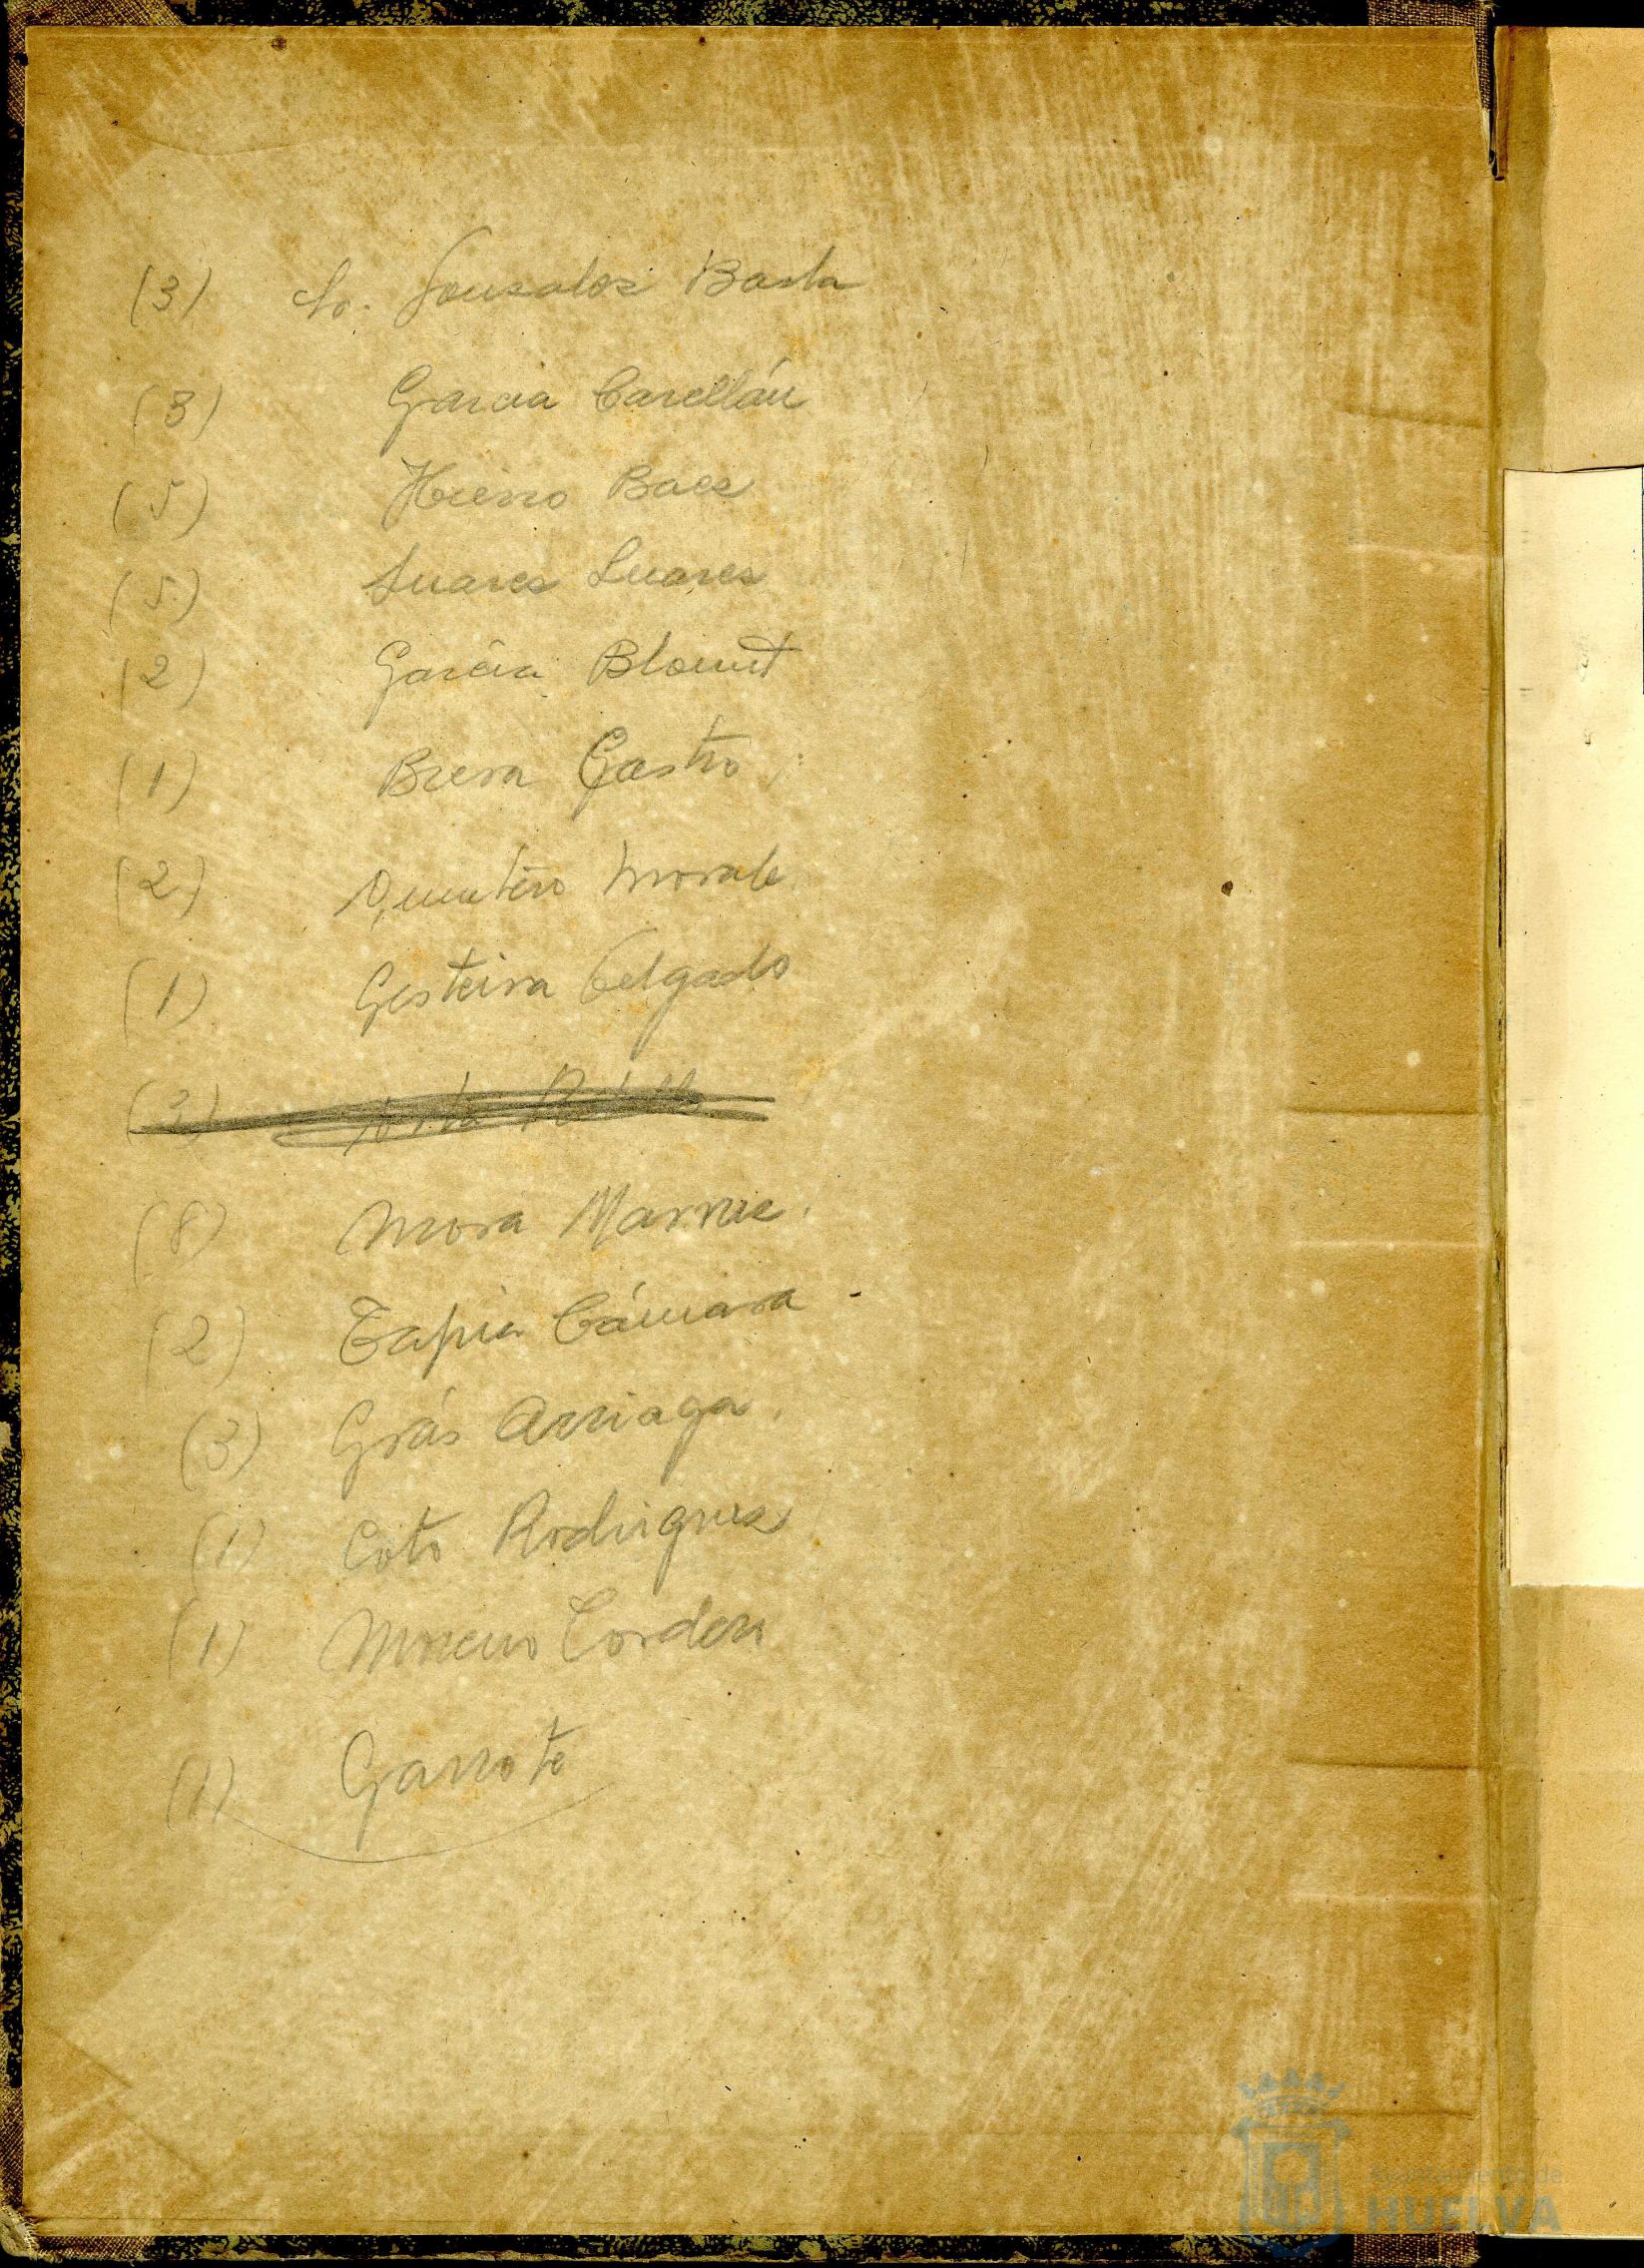 (3) Sr. Gonzalez Barba
(3) Garcia Carellán
(5) Hierro Baez
(5) Suarez Suarez
(2) Garcia Blount
(1) Brera Gastro
(2) Quintero Morale
(1) Gesteira Delgado
(2)
(8) Mora Marrue.
(2) Tapia Cámara
(3) Grás Arriaga.
(1) Coto Rodriguez
(1) Moreno Cordero
(1) Garrote
Ayuntamiento de
HUELVA